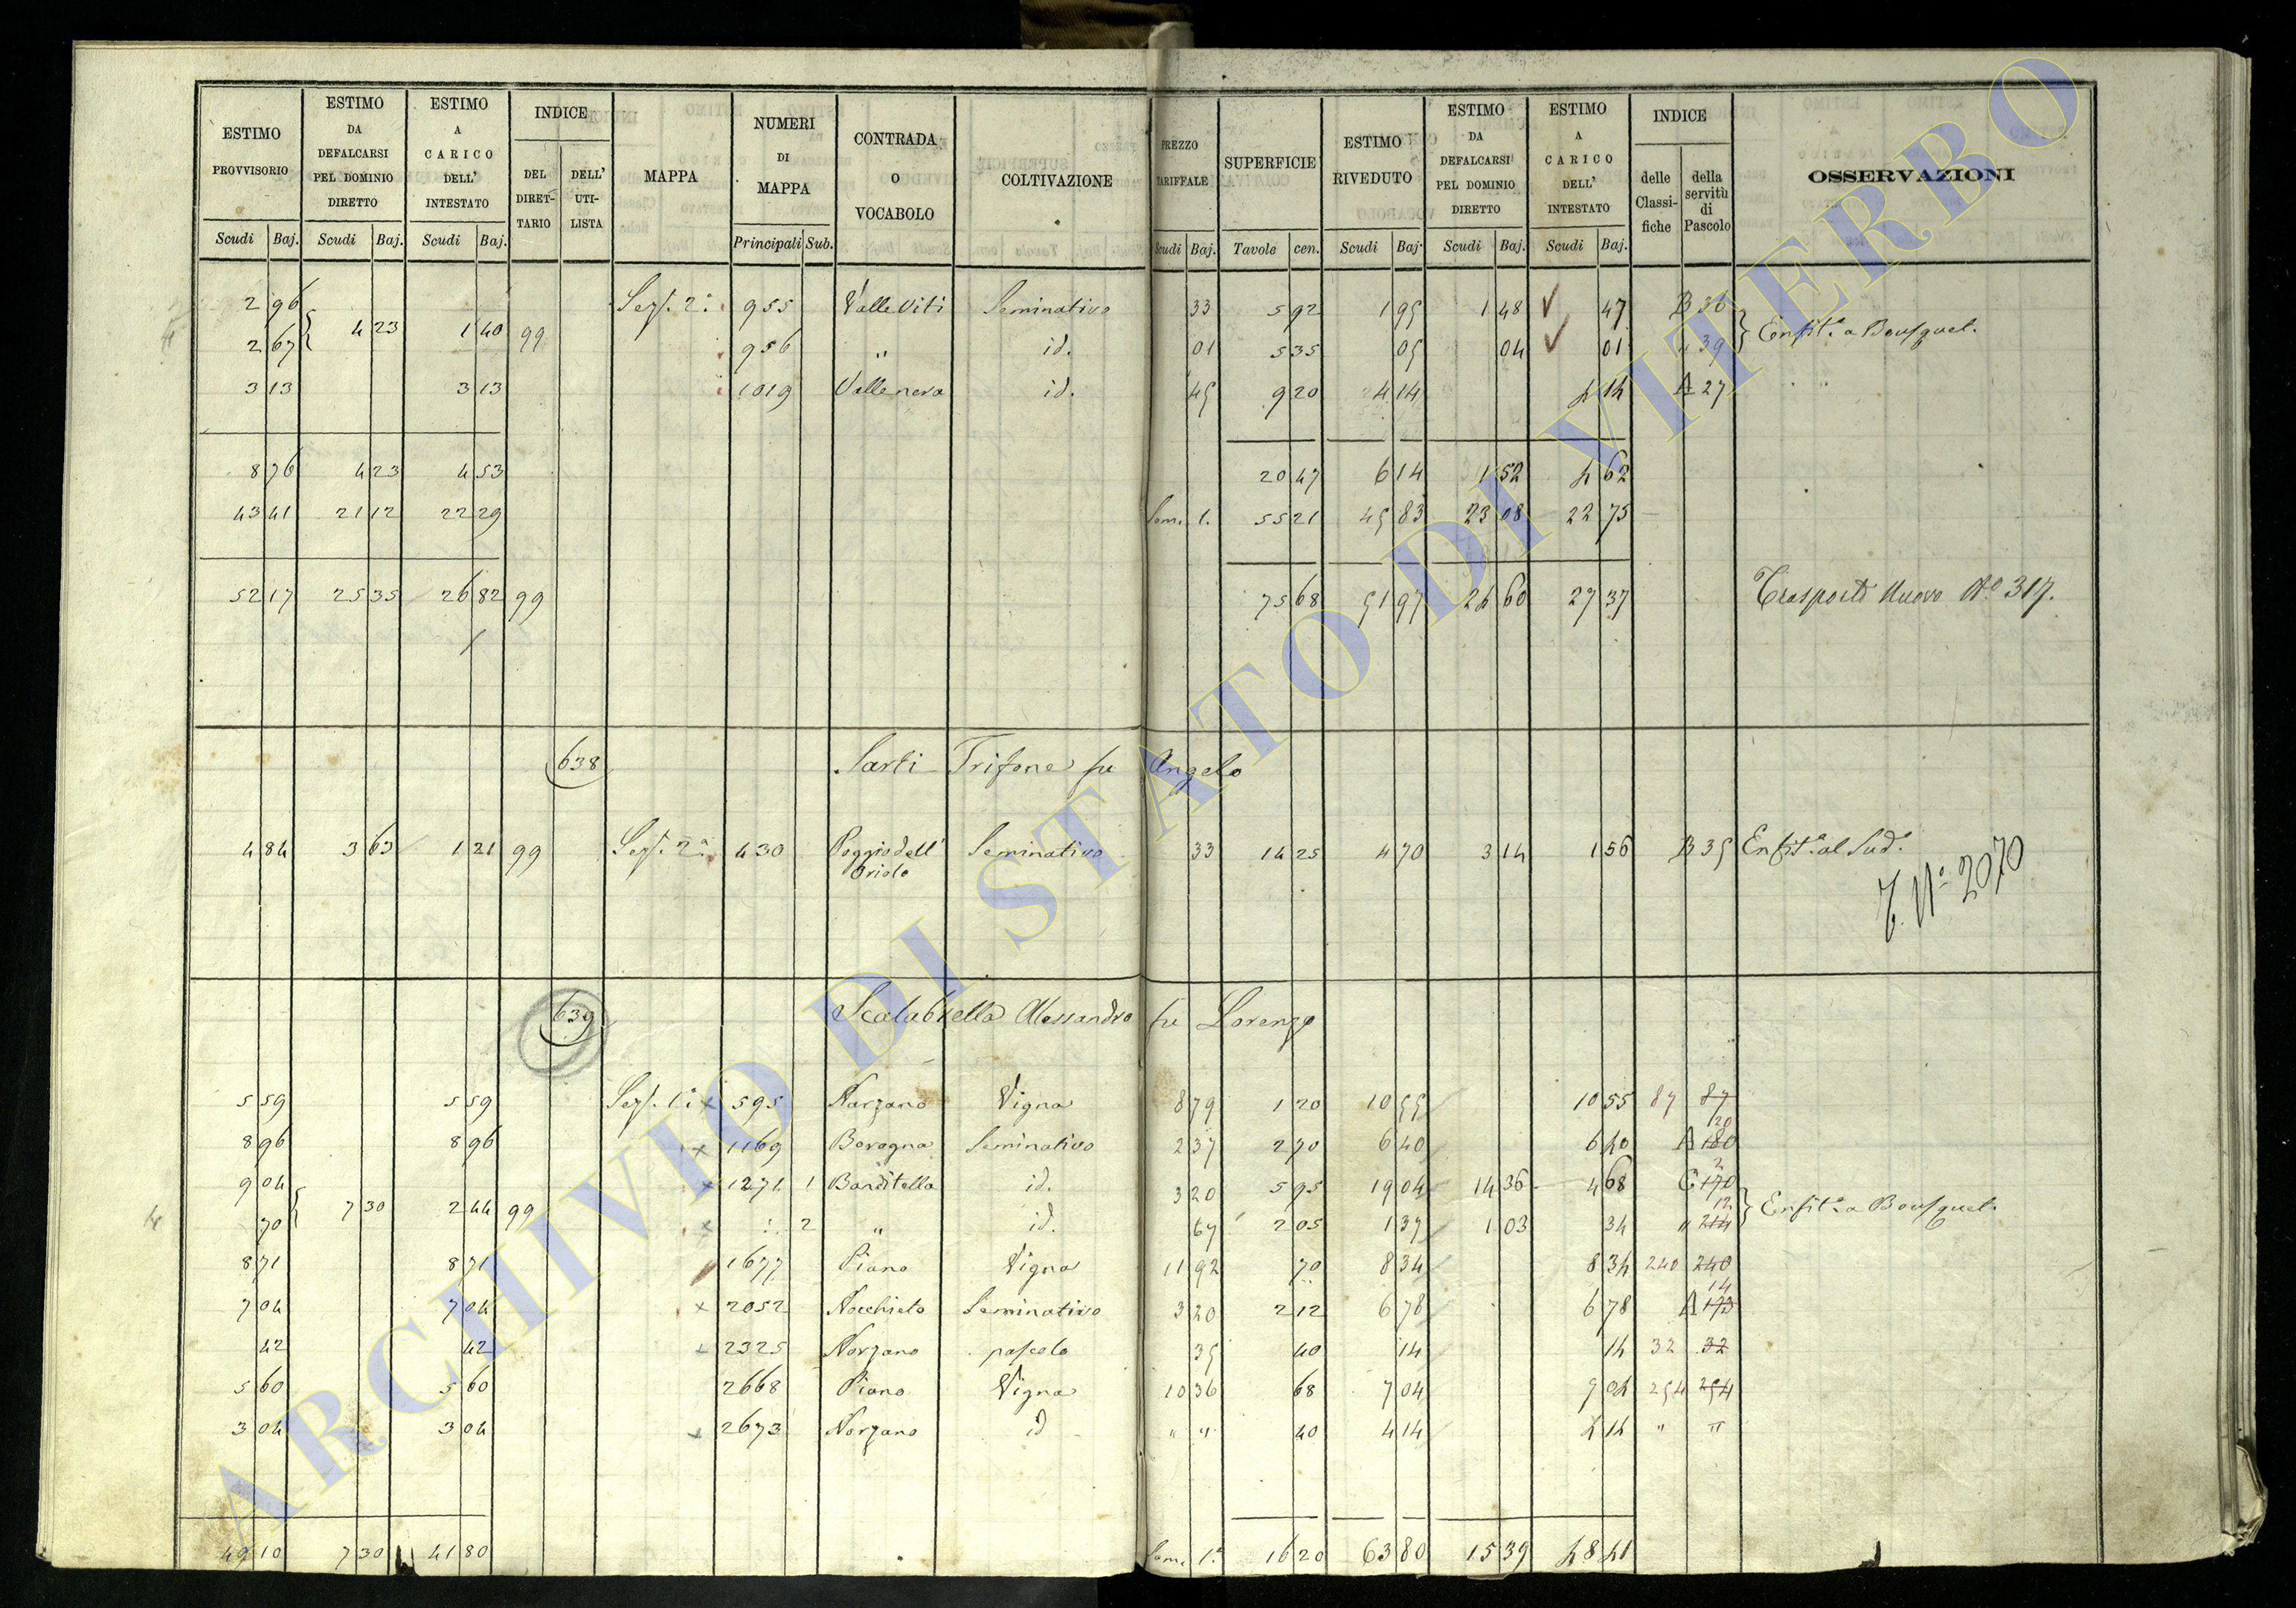 ESTIMO PROVVISORIO | ESTIMO DA DEFALCARSI PEL DOMINIO DIRETTO | ESTIMO A CARICO DELL' INTESTATO | INDICE | MAPPA | NUMERI DI MAPPA | CONTRADA O VOCABOLO | COLTIVAZIONE | PREZZO TARIFFALE | SUPERFICIE | ESTIMO RIVEDUTO | ESTIMO DA DEFALCARSI PEL DOMINIO DIRETTO | ESTIMO A CARICO DELL' INTESTATO | INDICE | OSSERVAZIONI
DEL DIRETTARIO | DELL' UTILISTA | delle Classifiche | della servitù di Pascolo
Scudi Baj. | Scudi Baj. | Scudi Baj. | Principali Sub. | Scudi Baj. | Tavole cen. | Scudi Baj. | Scudi Baj. | Scudi Baj.
2 96 | Sez. 2ª | 955 | Valle Viti | Seminativo | 33 | 5 92 | 1 95 | 1 48 | 47 | B 36
4 23 | 1 40 | 99 | Enfit.ª a Bousquet.
2 67 | 956 | " | id. | 01 | 5 35 | 05 | 04 | 01 | " 39
3 13 | 3 13 | 1019 | Valle nera | id. | 45 | 9 20 | 4 14 | 4 14 | A 27
8 76 | 4 23 | 4 53 | 20 47 | 6 14 | 1 52 | 4 62
43 41 | 21 12 | 22 29 | Som. 1. | 55 21 | 45 83 | 23 08 | 22 75
52 17 | 25 35 | 26 82 | 99 | 75 68 | 51 97 | 24 60 | 27 37 | Trasporto Nuovo Nº 317.
638 | Sarti Trifone fu Angelo
4 84 | 3 63 | 1 21 | 99 | Sez. 2ª | 430 | Poggio dell' Oriolo | Seminativo | 33 | 14 25 | 4 70 | 3 14 | 1 56 | B 35 | Enfit.ª al Sud.º
T. Nº 2070
639 | Scalabrella Alessandro fu Lorenzo
5 59 | 5 59 | Sez. 1ª x | 595 | Narzano | Vigna | 8 79 | 1 20 | 10 55 | 10 55 | 87 | 87
8 96 | 8 96 | x | 1169 | Bovogna | Seminativo | 2 37 | 2 70 | 6 40 | 6 40 | A 180 120
9 04 | x | 1271 1 | Banditella | id. | 3 20 | 5 95 | 19 04 | 14 36 | 4 68 | C 170 2
7 30 | 2 44 | 99 | Enfit.ª a Bousquet.
70 | x | : 2 | " | id. | 67 | 2 05 | 1 37 | 1 03 | 34 | " 214 12
8 71 | 8 71 | 1677 | Piano | Vigna | 11 92 | 70 | 8 34 | 8 34 | 240 | 240
7 04 | 7 04 | x | 2052 | Nocchieto | Seminativo | 3 20 | 2 12 | 6 78 | 6 78 | A 173 14
42 | 42 | x | 2325 | Norzano | pascolo | 35 | 40 | 14 | 14 | 32 | 32
5 60 | 5 60 | 2668 | Piano | Vigna | 10 36 | 68 | 7 04 | 7 04 | 254 | 254
3 04 | 3 04 | x | 2673 | Norzano | id | " " | 40 | 4 14 | 4 14 | " | "
49 10 | 7 30 | 41 80 | Som. 1ª | 16 20 | 63 80 | 15 39 | 48 41
ARCHIVIO DI STATO DI VITERBO